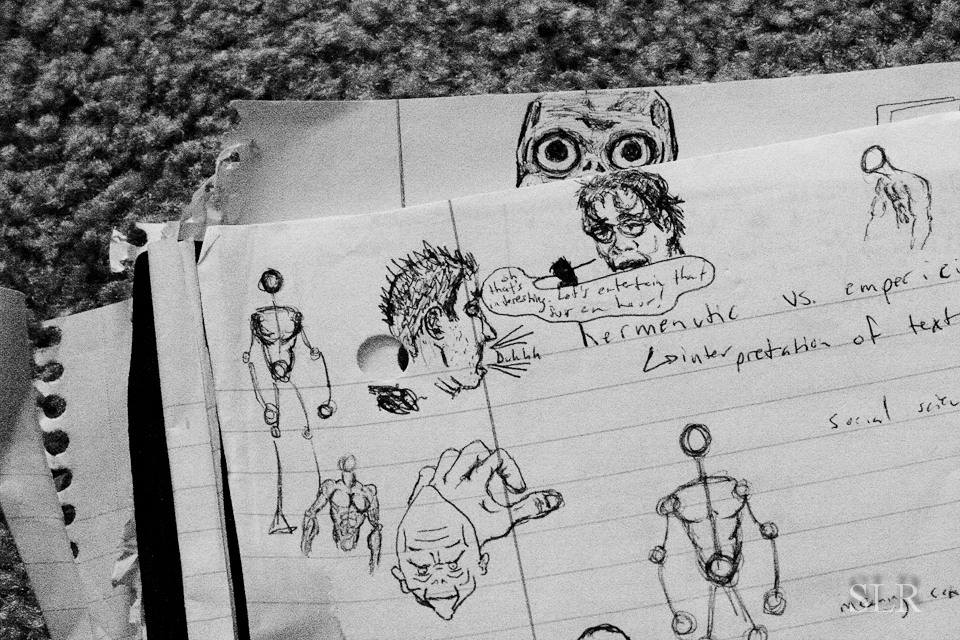 oh that's interesting. Let's entertain that for an hour!
Duhhh
hermenutic vs. emperici
↳ interpretation of text
social scien
meaning
SLR